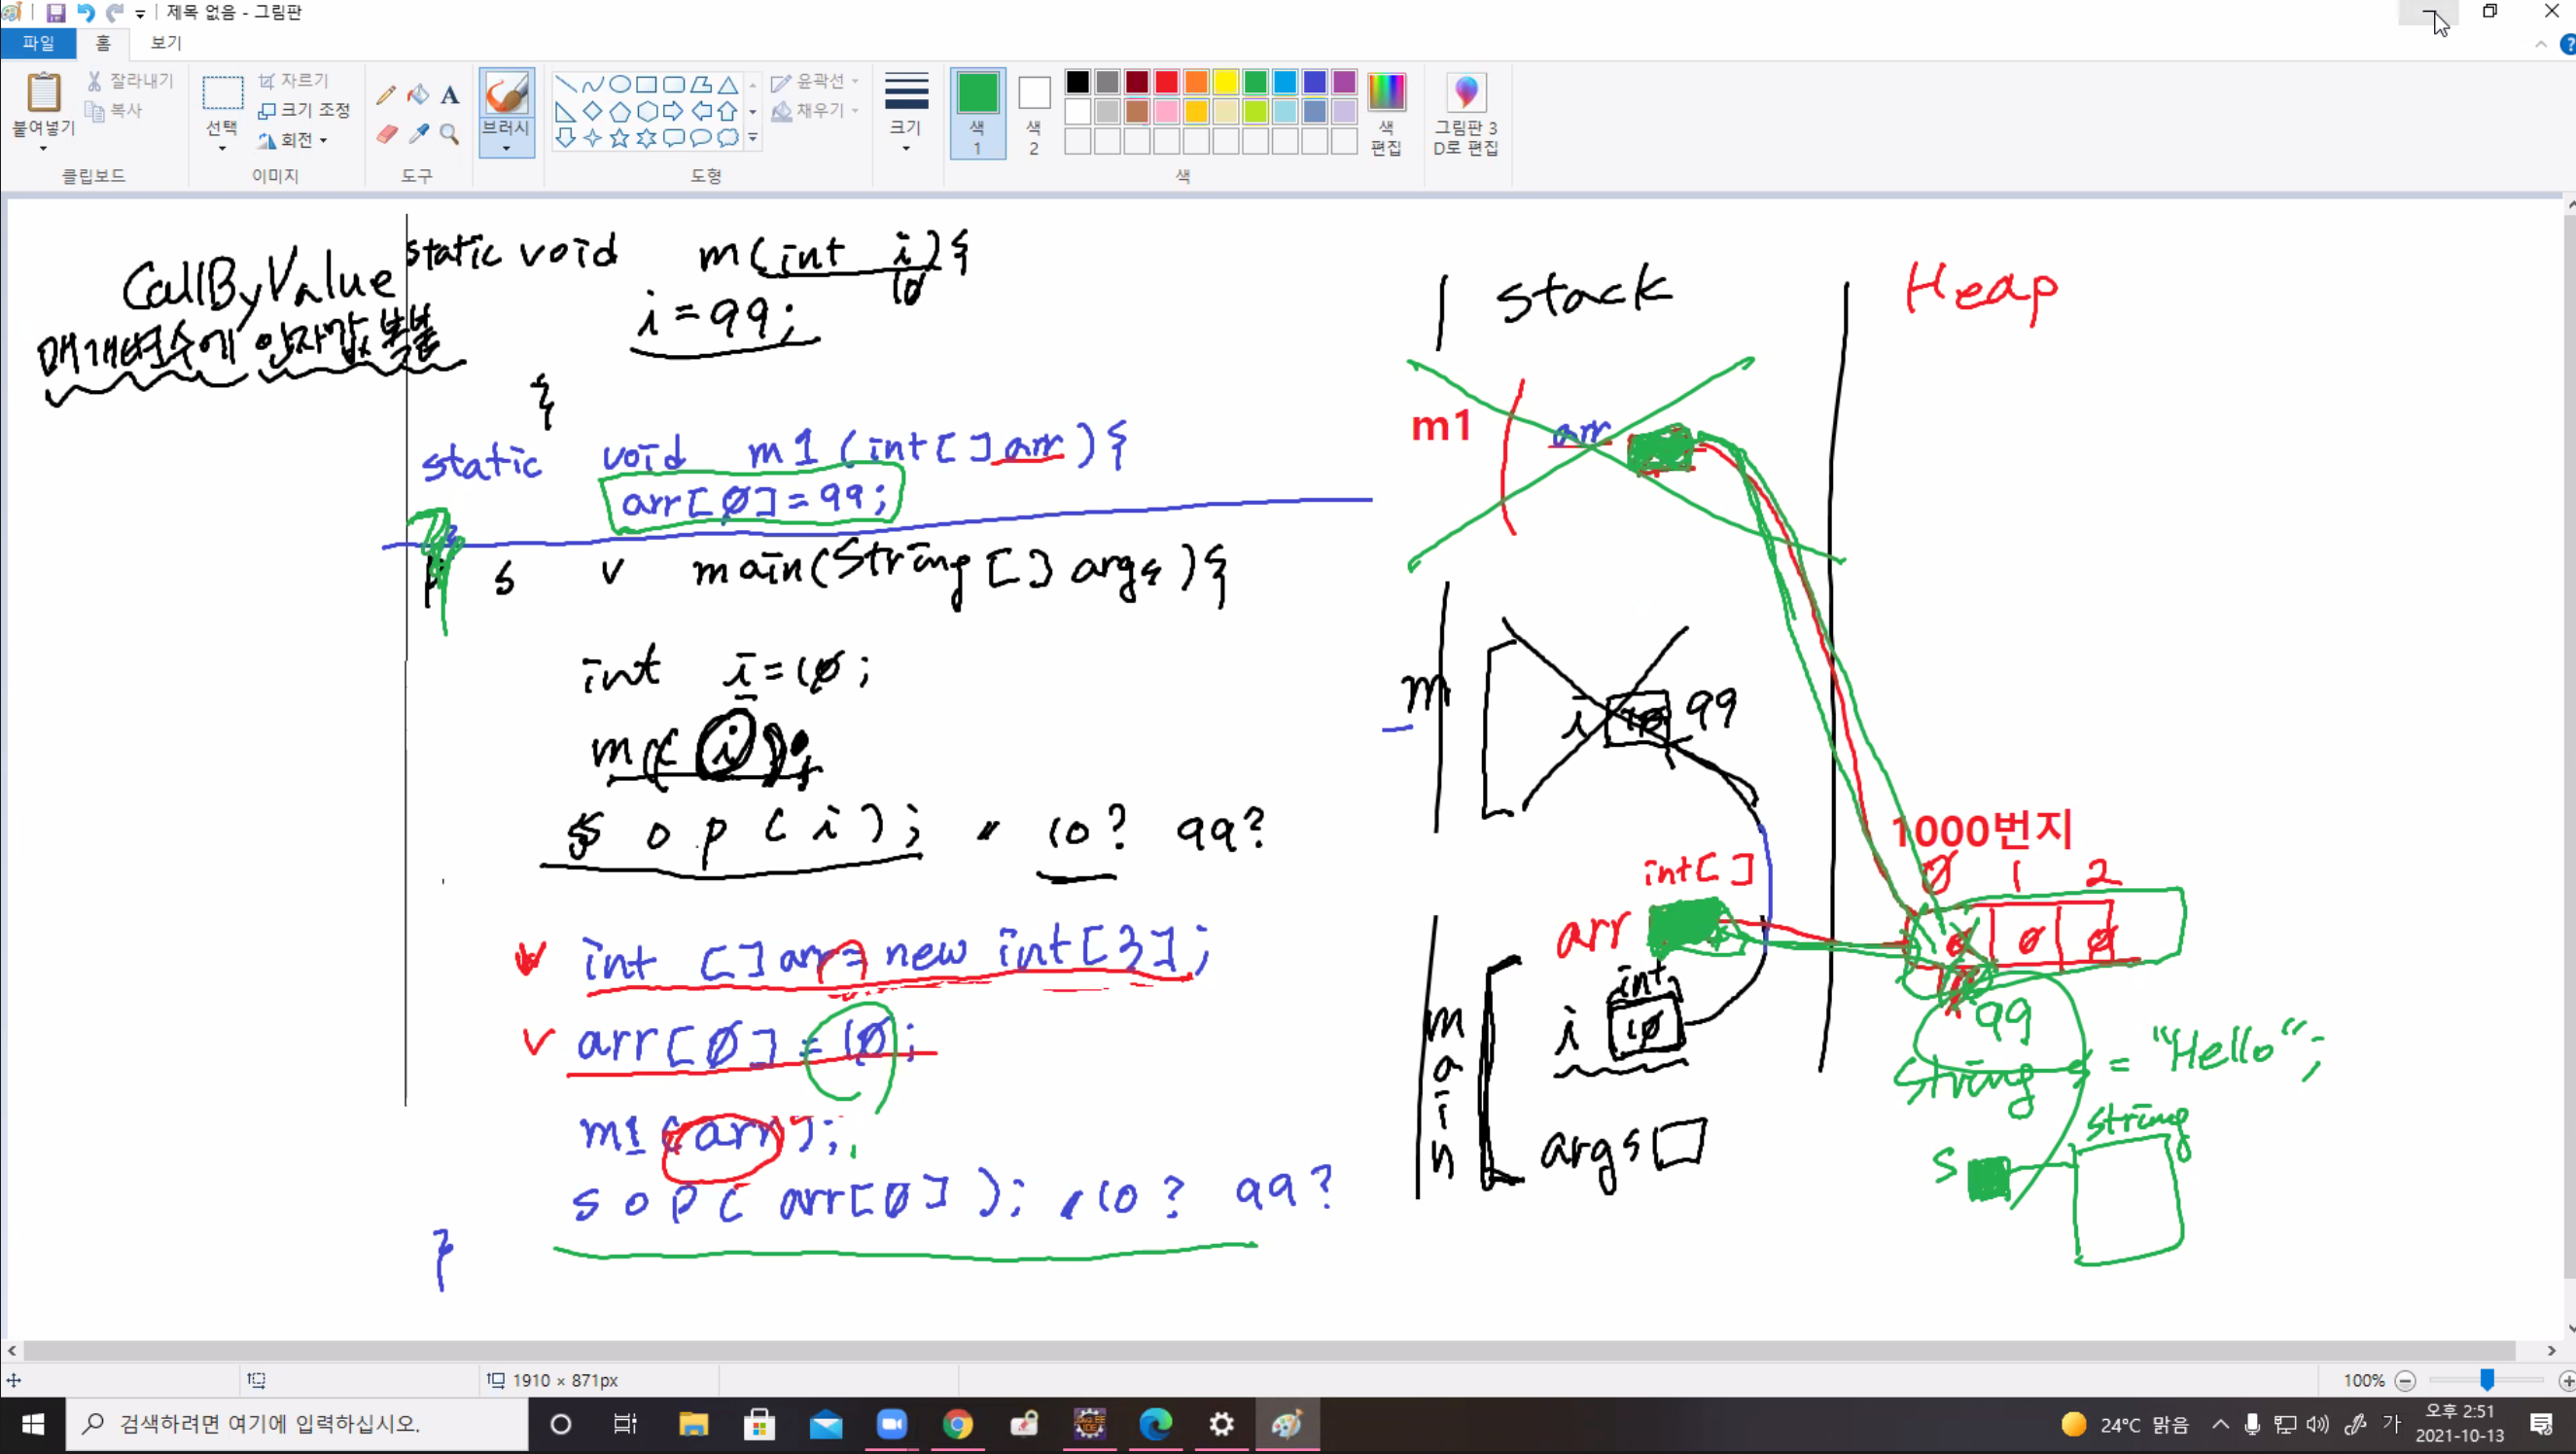 제목 없음 - 그림판
파일 홈 보기
붙여넣기 잘라내기 복사 클립보드
선택 자르기 크기 조정 회전 이미지
도구
브러시
윤곽선 채우기 도형
크기
색 1 색 2 색 편집 색
그림판 3D로 편집
CallByValue
매개변수에 인자값 복붙
static void m(int i){
10
i=99;
}
static void m1(int[] arr){
arr[0]=99;
}
p s v main(String[] args){
int i=10;
m(i);
s o p(i); // 10? 99?
int []arr=new int[3];
arr[0]=10;
m1(arr);
s o p( arr[0] ); // 10? 99?
}
stack Heap
m1 arr
m i 10 99
int[]
arr
int
i 10
main
args
1000번지
0 1 2
0 0 0
99
String s = "Hello";
String
s
1910 × 871px 100%
검색하려면 여기에 입력하십시오.
24°C 맑음 가 오후 2:51
2021-10-13